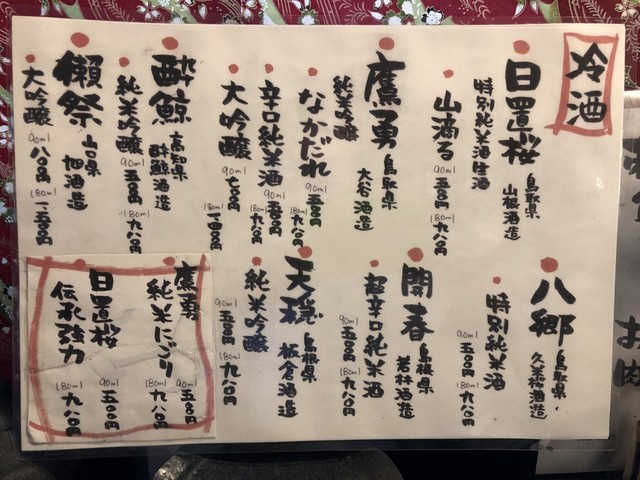 冷酒
日置桜 鳥取県 山根酒造
特別純米酒生酒
山滴る 90ml 五〇〇円 180ml 九八〇円
鷹勇 鳥取県 大谷酒造
純米吟醸
なかだれ 90ml 五〇〇円 180ml 九八〇円
辛口純米酒 90ml 五〇〇円 180ml 九八〇円
大吟醸 90ml 七〇〇円 180ml 一四〇〇円
酔鯨 高知県 酔鯨酒造
純米吟醸 90ml 五〇〇円 180ml 九八〇円
獺祭 山口県 旭酒造
大吟醸 90ml 八〇〇円 180ml 一五〇〇円
八郷 鳥取県 久米桜酒造
特別純米酒 90ml 五〇〇円 180ml 九八〇円
開春 島根県 若林酒造
超辛口純米酒 90ml 五〇〇円 180ml 九八〇円
天穏 島根県 板倉酒造
純米吟醸 90ml 五〇〇円 180ml 九八〇円
鷹勇
純米にごり 90ml 五〇〇円 180ml 九八〇円
日置桜
伝承強力 90ml 五〇〇円 180ml 九八〇円
お肉